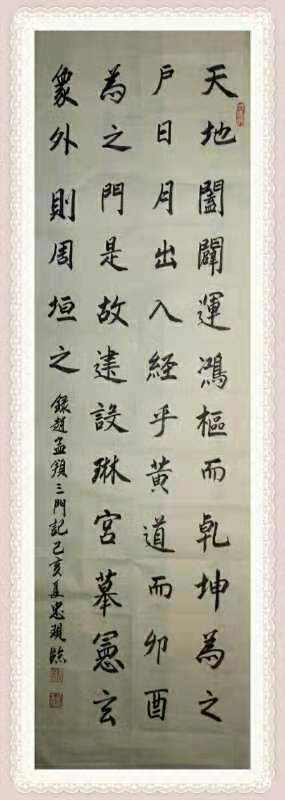 天地闔闢運鴻樞而乹坤為之
戶日月出入経乎黃道而卯酉
為之門是故建設琳宮摹憲玄
象外則周垣之
錄趙孟頫三門記己亥夏忠臨